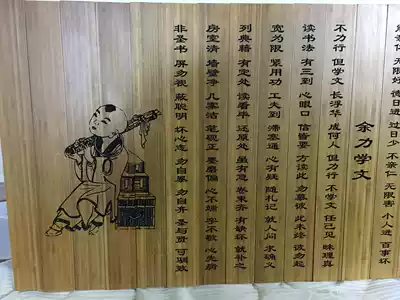 亲仁 无限好 德日进 过日少 不亲仁 无限害 小人进 百事坏
余力学文
不力行 但学文 长浮华 成何人 但力行 不学文 任己见 昧理真
读书法 有三到 心眼口 信皆要 方读此 勿慕彼 此未终 彼勿起
宽为限 紧用功 工夫到 滞塞通 心有疑 随札记 就人问 求确义
列典籍 有定处 读看毕 还原处 虽有急 卷束齐 有缺坏 就补之
房室清 墙壁净 几案洁 笔砚正 墨磨偏 心不端 字不敬 心先病
非圣书 屏勿视 蔽聪明 坏心志 勿自暴 勿自弃 圣与贤 可驯致